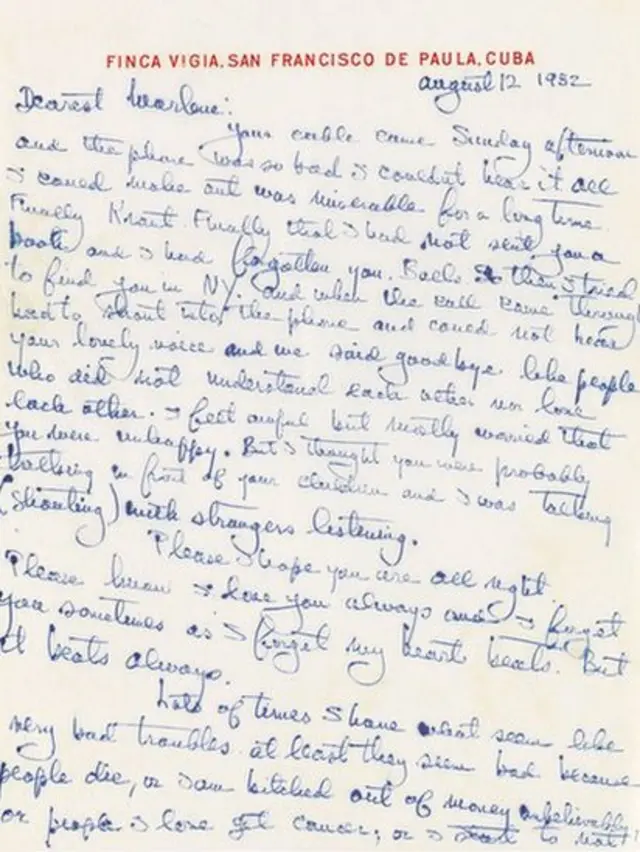 FINCA VIGIA, SAN FRANCISCO DE PAULA, CUBA
august 12 1952
Dearest Marlene:
Your cable came Sunday afternoon
and the phone was so bad I couldnt hear it all
I could make out was miserable for a long time.
Finally Kraut. Finally that I had not sent you a
book and I had forgotten you. Balls. So then I tried
to find you in NY. and when the call came through
had to shout into the phone and could not hear
your lovely voice and we said goodbye like people
who did not understand each other nor love
each other. I felt awful but mostly worried that
you were unhappy. But I thought you were probably
talking in front of your children and I was talking
(shouting) with strangers listening.
Please I hope you are all right
Please know I love you always and I forget
you sometimes as I forget my heart beats. But
it beats always.
Lots of times I have what seem like
very bad troubles. at least they seem bad because
people die, or I am bitched out of money unbelievably,
or people I love get cancer; or I to not